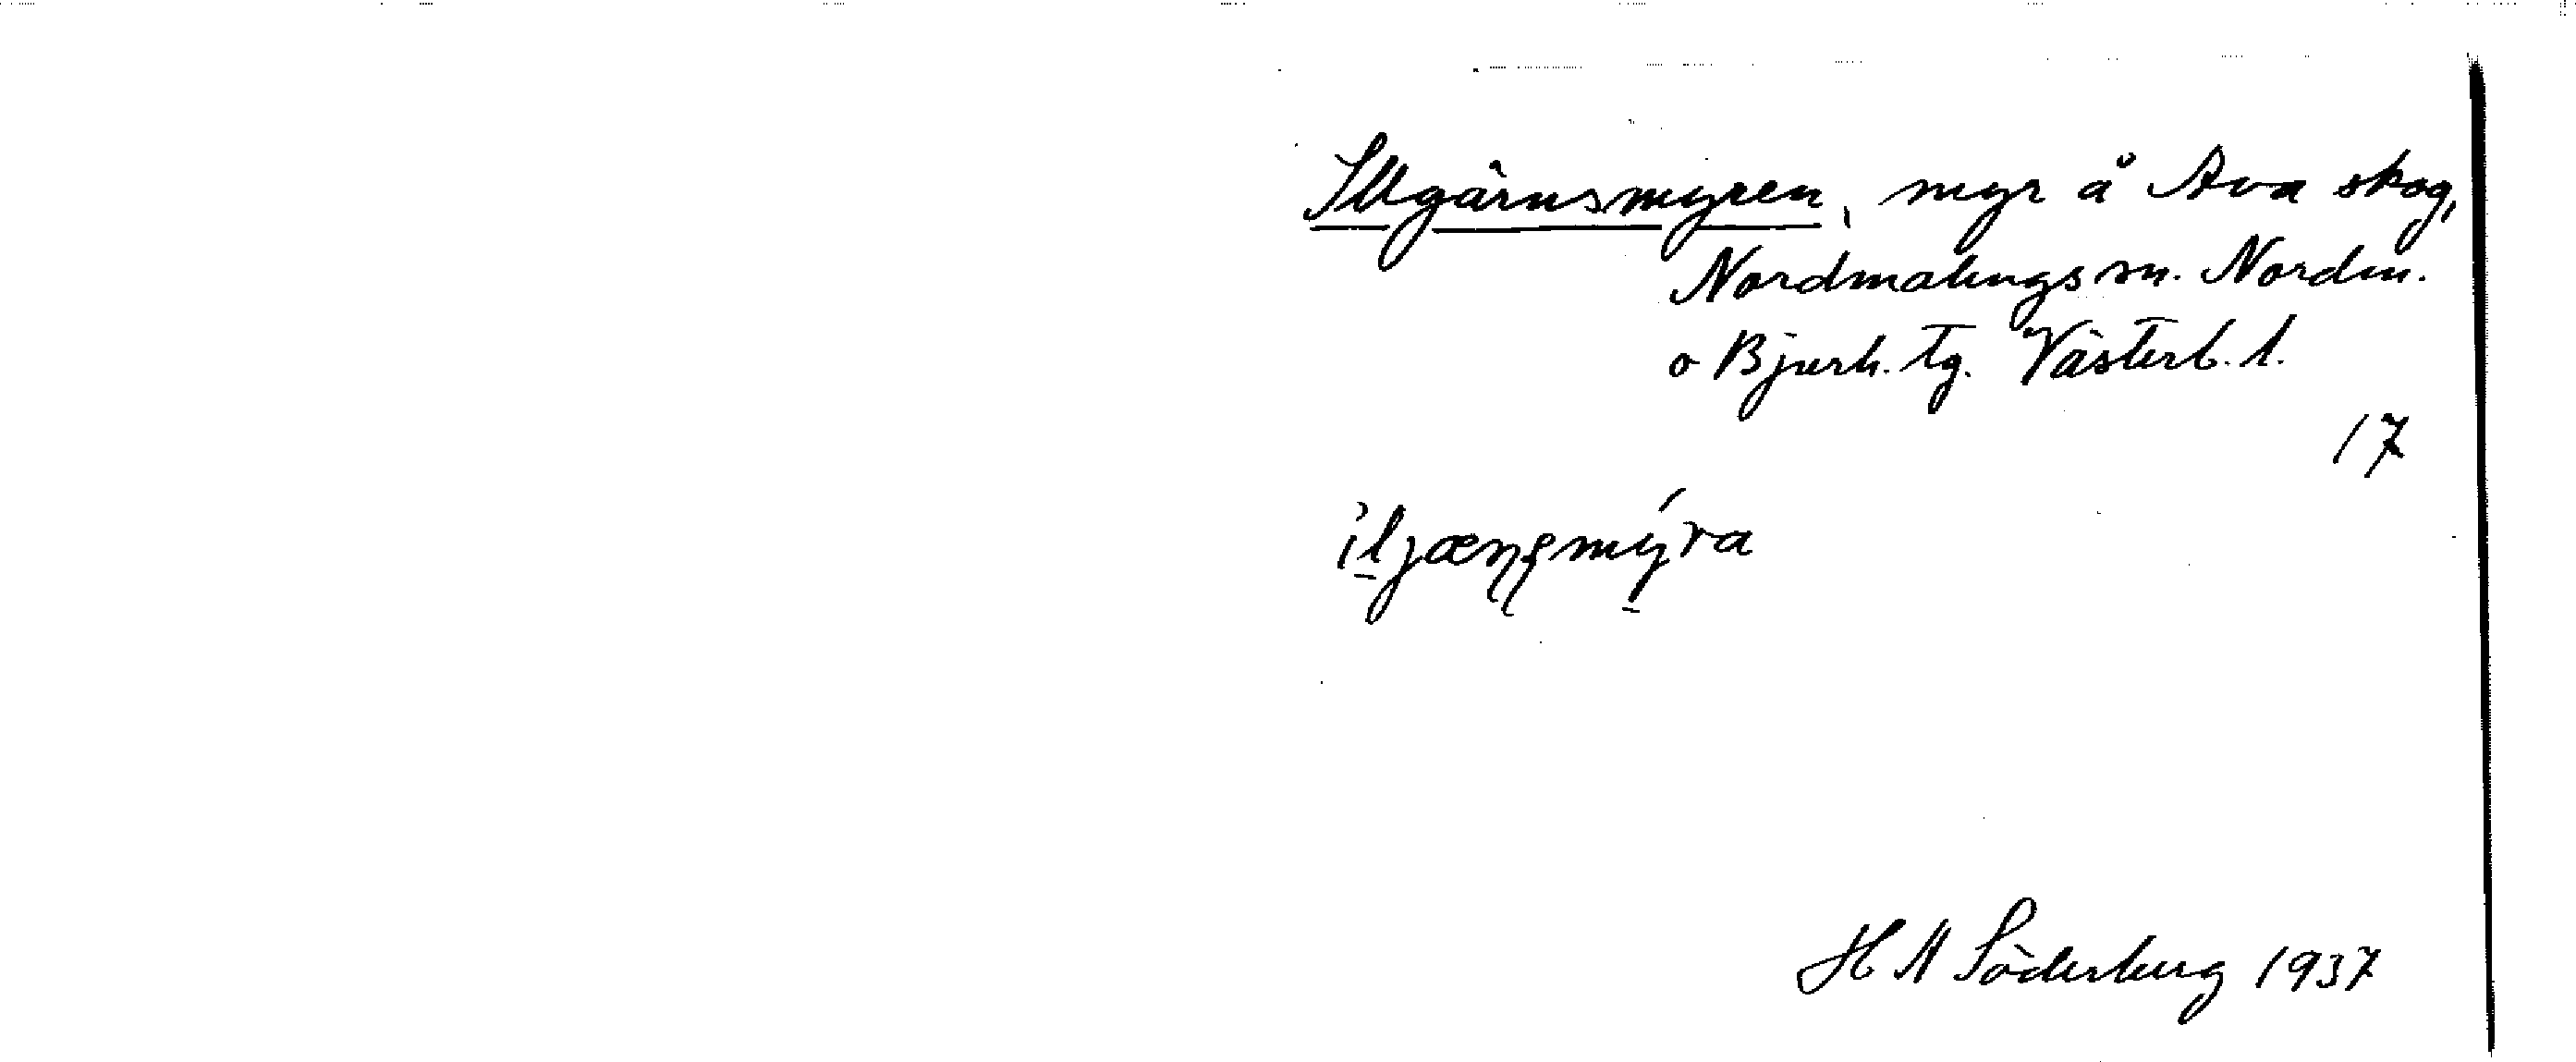 Illgärnsmyren, myr å Ava skog,
Nordmalings sn. Nordm.
o Bjurh. tg. Västerb. l.
17
H A Söderberg 1937